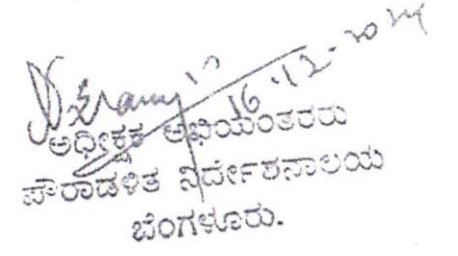 16.12.2024
ಅಧೀಕ್ಷಕ ಅಭಿಯಂತರರು
ಪೌರಾಡಳಿತ ನಿರ್ದೇಶನಾಲಯ
ಬೆಂಗಳೂರು.